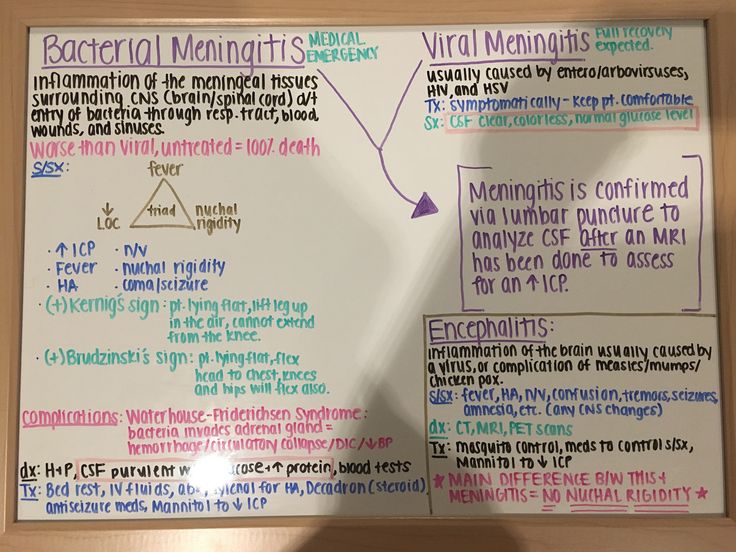 Bacterial Meningitis MEDICAL EMERGENCY
inflammation of the meningeal tissues
surrounding CNS (brain/spinal cord) d/t
entry of bacteria through resp. tract, blood,
wounds, and sinuses.
worse than viral, untreated = 100% death
S/Sx:
fever
↓ LOC
triad
nuchal rigidity
· ↑ ICP · n/v
· Fever · nuchal rigidity
· HA · coma/seizure
· (+) Kernig's sign: pt. lying flat, lift leg up
in the air, cannot extend
from the knee.
· (+) Brudzinski's sign: pt. lying flat, flex
head to chest, knees
and hips will flex also.
complications: Waterhouse-Friderichsen Syndrome:
bacteria invades adrenal gland =
hemorrhage/circulatory collapse/DIC/↓BP
dx: H+P, CSF purulent + ↑ protein, blood tests
Tx: Bed rest, IV fluids, for HA, Decadron (steroid),
antiseizure meds, Mannitol to ↓ ICP
Viral Meningitis Full recovery expected.
usually caused by entero/arbovirsuses,
HIV, and HSV
Tx: symptomatically - keep pt. comfortable
Sx: CSF clear, colorless, normal glucose level
Meningitis is confirmed
via lumbar puncture to
analyze CSF after an MRI
has been done to assess
for an ↑ ICP.
Encephalitis:
inflammation of the brain usually caused by
a virus, or complication of measles/mumps/
chicken pox.
S/Sx: fever, HA, n/v, confusion, tremors, seizures,
amnesia, etc. (any CNS changes)
dx: CT, MRI, PET scans
Tx: mosquito control, meds to control s/sx,
Mannitol to ↓ ICP
* MAIN DIFFERENCE B/W THIS +
MENINGITIS = NO NUCHAL RIGIDITY *